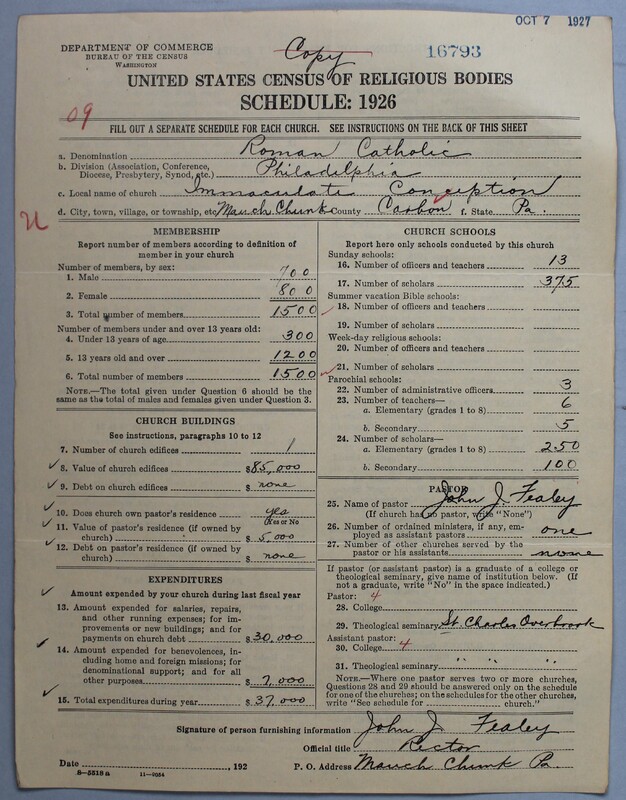 OCT 7 1927
DEPARTMENT OF COMMERCE
BUREAU OF THE CENSUS
WASHINGTON
Copy
16793
UNITED STATES CENSUS OF RELIGIOUS BODIES
SCHEDULE: 1926
09
FILL OUT A SEPARATE SCHEDULE FOR EACH CHURCH. SEE INSTRUCTIONS ON THE BACK OF THIS SHEET
a. Denomination Roman Catholic
b. Division (Association, Conference, Diocese, Presbytery, Synod, etc.) Philadelphia
c. Local name of church Immaculate Conception
d. City, town, village, or township, etc. Mauch Chunk County Carbon f. State Pa.
U
MEMBERSHIP
Report number of members according to definition of
member in your church
Number of members, by sex:
1. Male 700
2. Female 800
3. Total number of members 1500
Number of members under and over 13 years old:
4. Under 13 years of age 300
5. 13 years old and over 1200
6. Total number of members 1500
NOTE.—The total given under Question 6 should be the
same as the total of males and females given under Question 3.
CHURCH BUILDINGS
See instructions, paragraphs 10 to 12
7. Number of church edifices 1
8. Value of church edifices $85,000
9. Debt on church edifices $ none
10. Does church own pastor's residence yes
(Yes or No)
11. Value of pastor's residence (if owned by
church) $5,000
12. Debt on pastor's residence (if owned by
church) $ none
EXPENDITURES
Amount expended by your church during last fiscal year
13. Amount expended for salaries, repairs,
and other running expenses; for im-
provements or new buildings; and for
payments on church debt $30,000
14. Amount expended for benevolences, in-
cluding home and foreign missions; for
denominational support; and for all
other purposes $ 7,000
15. Total expenditures during year $ 37,000
CHURCH SCHOOLS
Report here only schools conducted by this church
Sunday schools:
16. Number of officers and teachers 13
17. Number of scholars 375
Summer vacation Bible schools:
18. Number of officers and teachers
19. Number of scholars
Week-day religious schools:
20. Number of officers and teachers
21. Number of scholars
Parochial schools:
22. Number of administrative officers 3
23. Number of teachers—
a. Elementary (grades 1 to 8) 6
b. Secondary 5
24. Number of scholars—
a. Elementary (grades 1 to 8) 250
b. Secondary 100
PASTOR
25. Name of pastor John J. Fealey
(If church has no pastor, write "None")
26. Number of ordained ministers, if any, em-
ployed as assistant pastors one
27. Number of other churches served by the
pastor or his assistants none
If pastor (or assistant pastor) is a graduate of a college or
theological seminary, give name of institution below. (If
not a graduate, write "No" in the space indicated.)
Pastor: 4
28. College
29. Theological seminary St Charles Overbrook
Assistant pastor:
30. College 4
31. Theological seminary " " "
NOTE.—Where one pastor serves two or more churches,
Questions 28 and 29 should be answered only on the schedule
for one of the churches; on the schedules for the other churches,
write "See schedule for church."
Signature of person furnishing information John J. Fealey
Official title Rector
Date , 192 P. O. Address Mauch Chunk Pa.
8—5518 a 11—9054